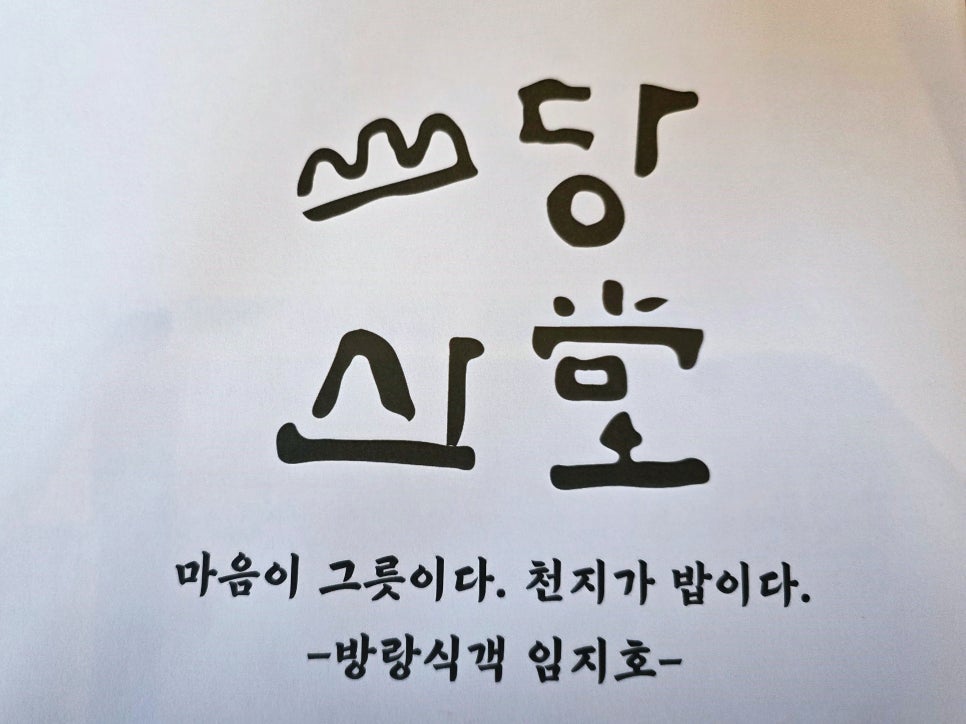 山당
산堂
마음이 그릇이다. 천지가 밥이다.
-방랑식객 임지호-